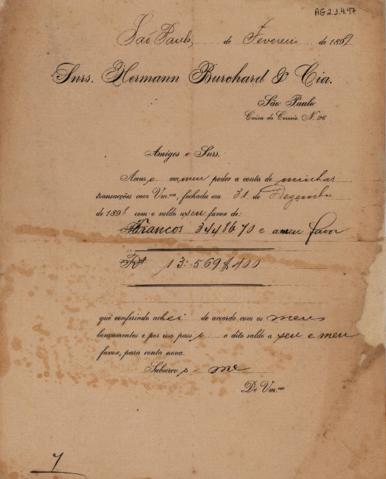 AG2.3.4.47
São Paulo, de Fevereiro de 189
Snrs. Hermann Burchard & Cia.
São Paulo
Caixa do Correio, N.º
Amigos e Snrs.
em meu poder a conta de minhas
transacções com Vm.ces, fechada em 31 de Dezembro
de 189 com o saldo a seu favor de:
Francos e a meu favor
Rs 13:569$100
que conferindo achei de accordo com os meus
lançamentos e por isso passo o dito saldo a seu e meu
favor, para conta nova.
Subscrevo-me
De Vm.ces